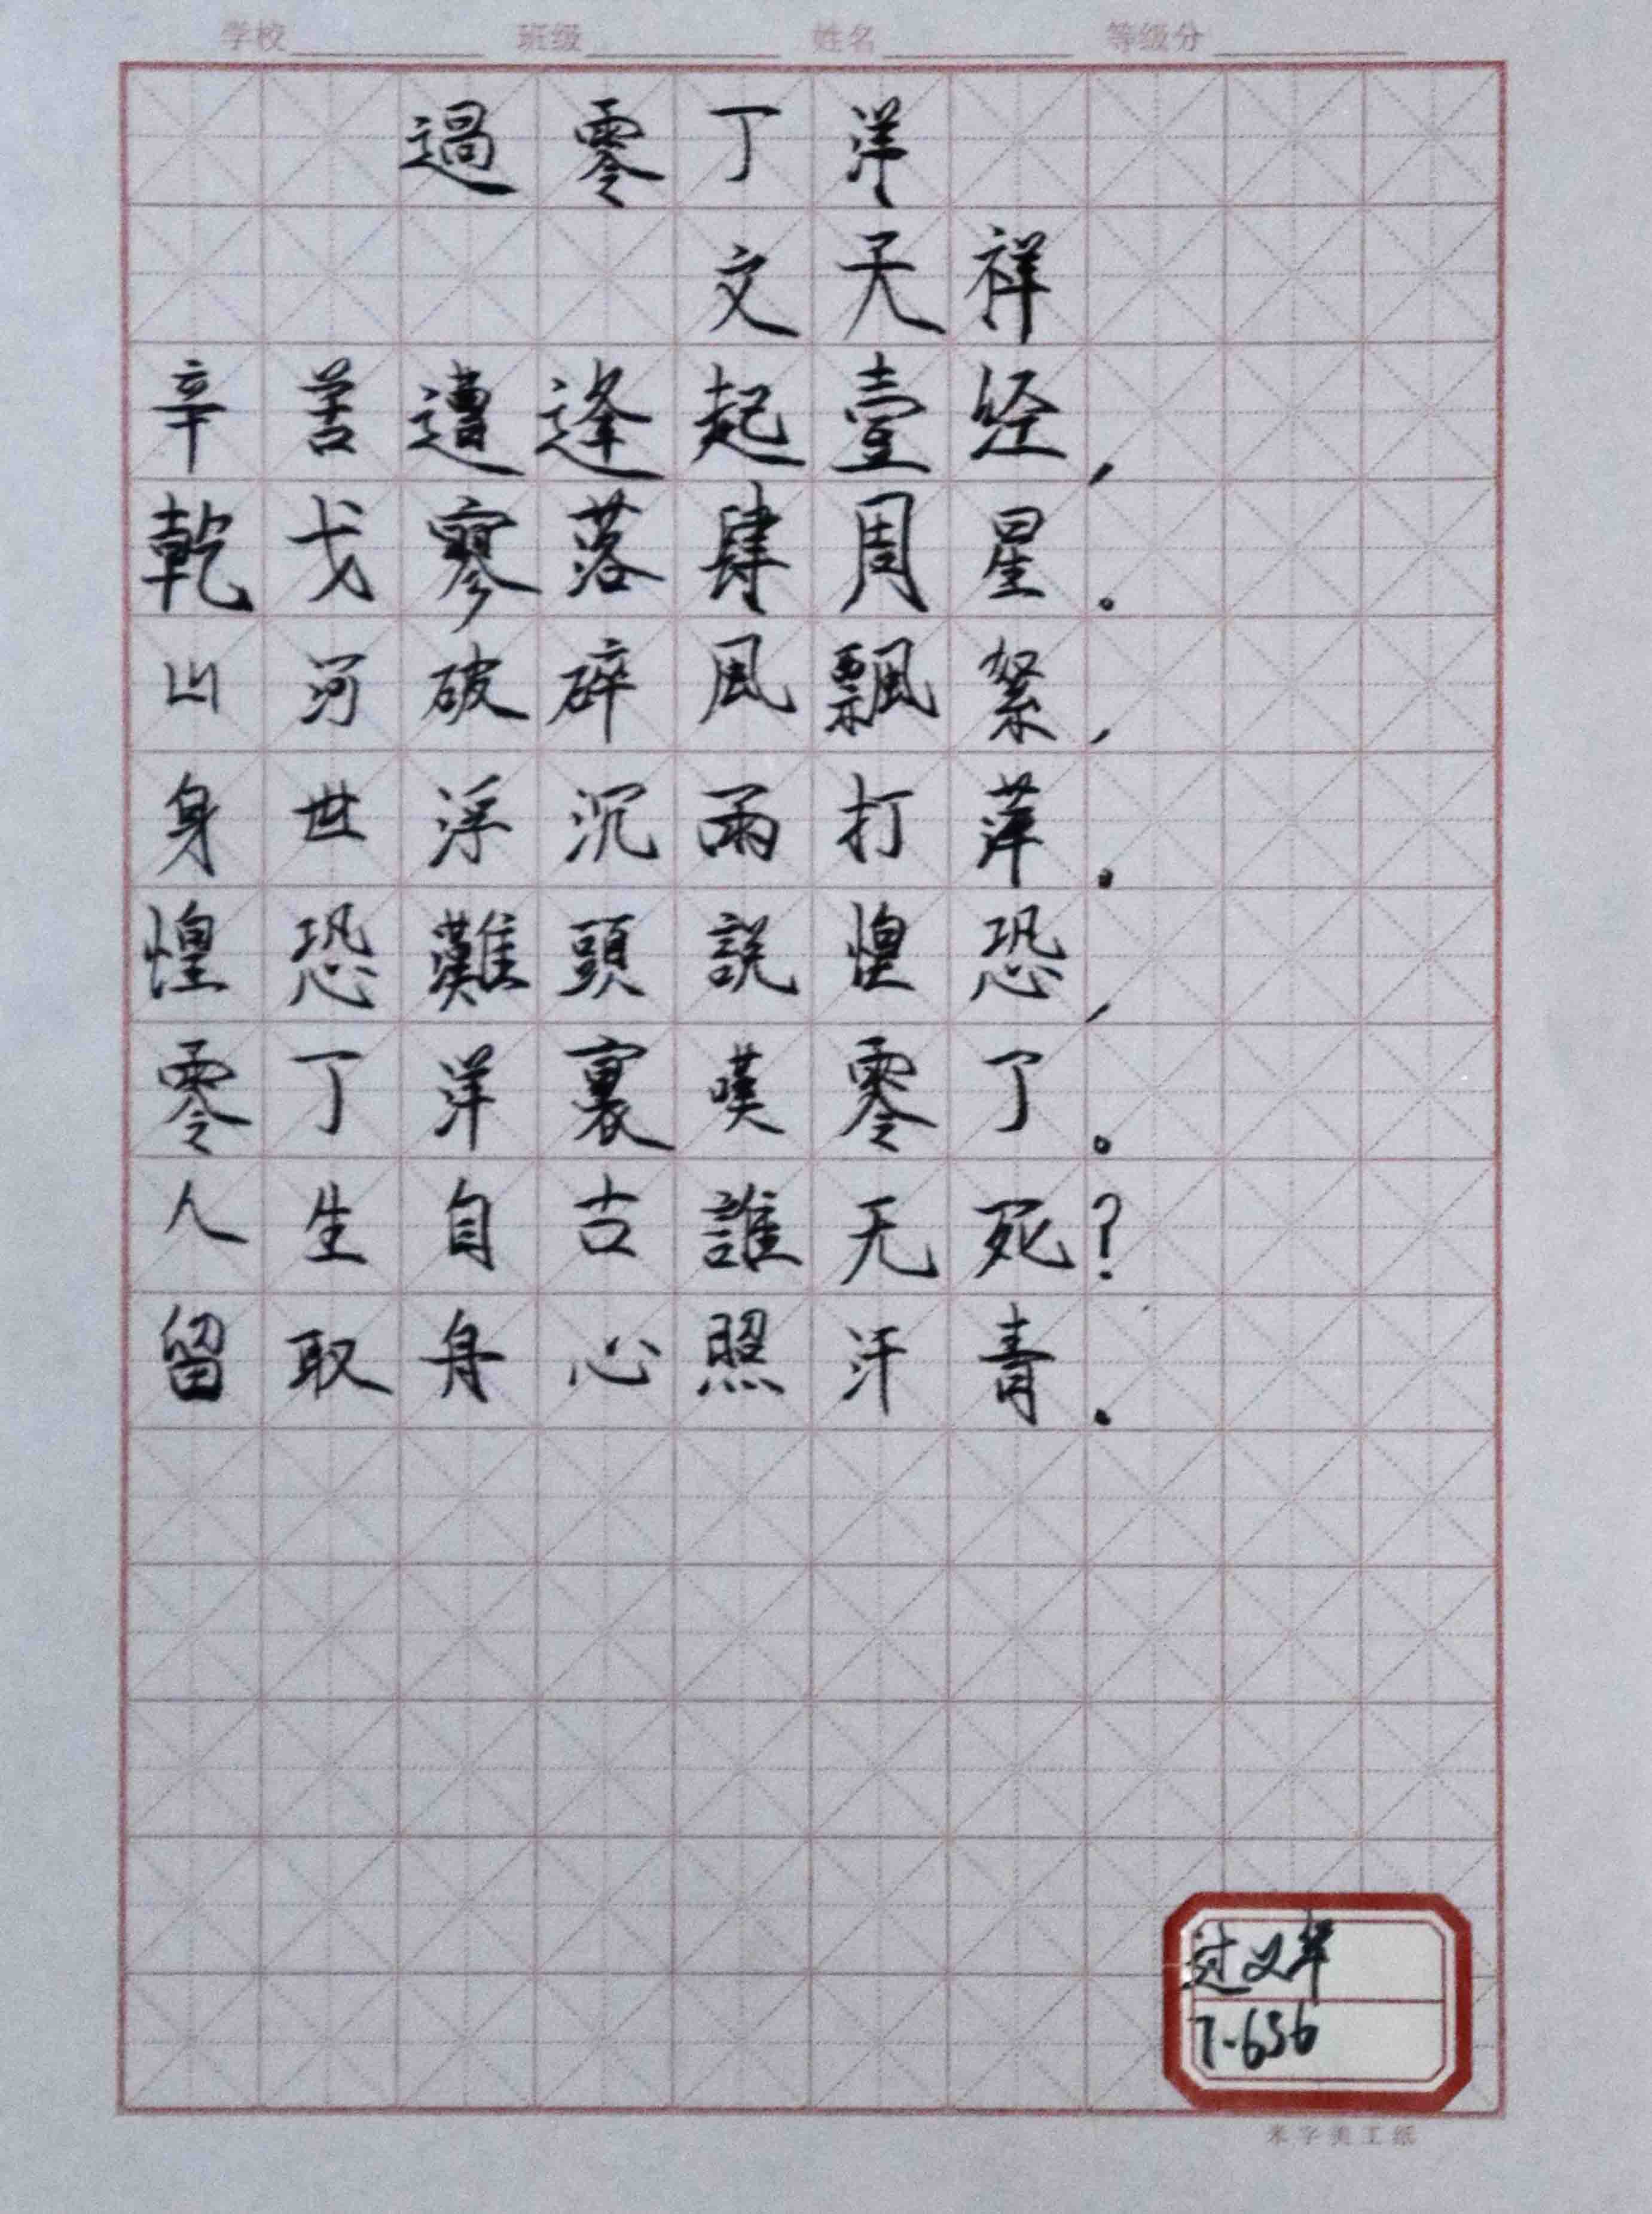 学校 班级 姓名 等级分
過零丁洋
文天祥
辛苦遭逢起壹经,
乾戈寥落肆周星.
山河破碎風飄絮,
身世浮沉雨打萍.
惶恐難頭説惶恐,
零丁洋裏嘆零丁。
人生自古誰无死?
留取丹心照汗青.
过义苹
7-656
米字美工纸